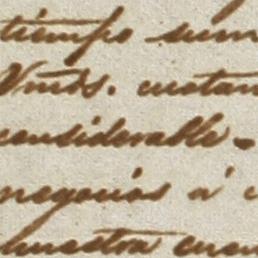 tiempo sum
Vmds. cuotan
considerable.
negocios a'
nuestra cuen